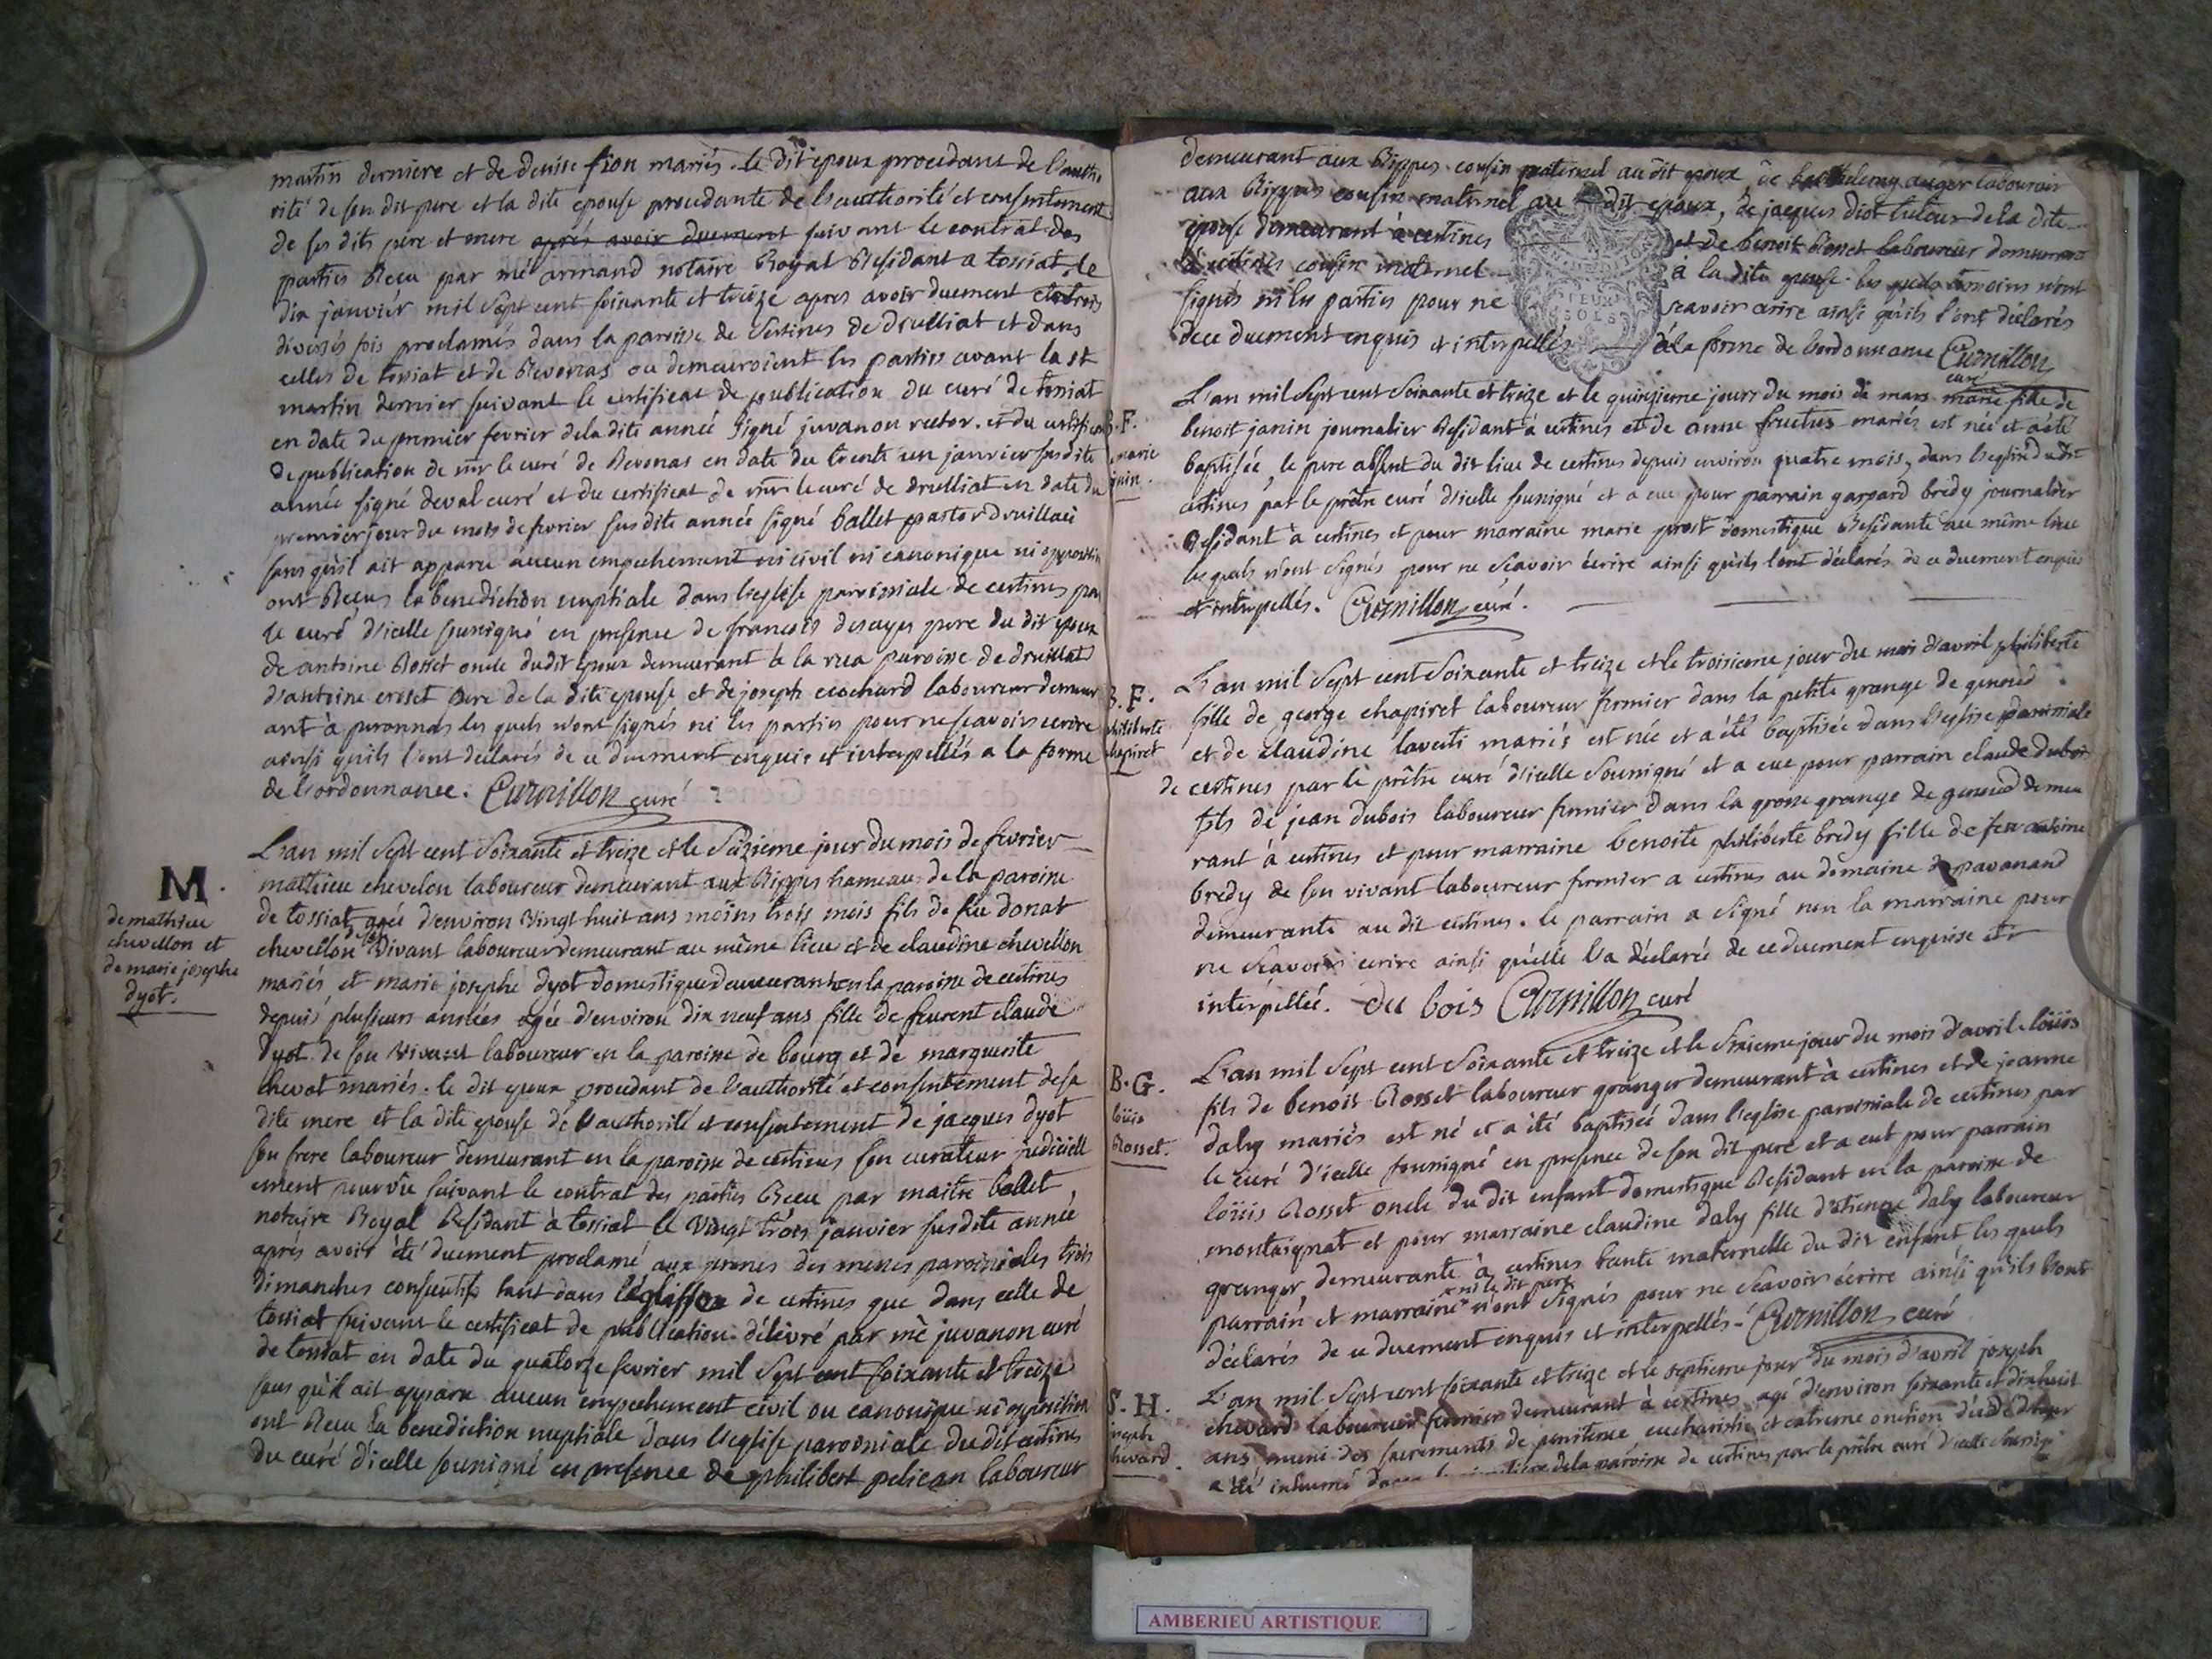 martin derniere et de denise fion mariés. le dit epoux procedant de l'autho
rité de son dit pere et la dite epouse procedante de l'authorité et consentement
de ses dits pere et mere après avoir duement suivant le contrat des
parties Reçu par mè armand notaire Royal Residant a tossiat le
dix janviér mil sept cent soixante et treize apres avoir duement
diverses fois proclamés dans la paroisse de Sertines de druilliat et dans
celles de tossiat et de Revonas ou demeuroient les parties avant la st
martin dernier suivant le certificat de publication du curé de tossiat
en date du premiér fevrier dela dite année signé juvanon rector. et du certificat
de publication de mr le curé de Revonas en date du trente un janvier susdite
année signé deval curé et du certificat de mr le curé de druilliat en date du
premièr jour du mois de fevrier susdite année signé ballet pastor druillaci
sans qu'il ait apparu aucun empechement ni civil ni canonique ni opposition
ont Reçus la benediction nuptiale dans l'eglise paroissiale de certines par
le curé d'icelle sousigné en presence de francois desayes pere du dit epoux
de antoine Rosset oncle dudit epoux demeurant à la rua paroisse de druillat
d'antoine croset pere de la dite epouse et de joseph cochard laboureur demeur
ant à peronnas les quels n'ont signés ni les parties pour ne scavoir ecrire
ainsi qu'ils l'ont declarés de ce duement enquis et interpellés a la forme
de l'ordonnance. Curnillon curé
M.
de mathieu
chevellon et
de marie josephe
dyot.
L'an mil sept cent soixante et treize et le seizieme jour du mois de fevrier
mathieu chevelon laboureur demeurant aux Rippes hameau de la paroisse
de tossiat agée d'environ vingt huit ans moins trois mois fils de feu donat
chevellon vivant laboureur demeurant au même lieu et de claudine chevellon
mariés et marie josephe dyot domestique demeurant en la paroisse de certines
depuis plusieurs années agée d'environ dix neuf ans fille de claude
dyot de son vivant laboureur en la paroisse de bourg et de marguerite
chevat mariés. le dit epoux procedant de l'authorité et consentement de sa
dite mere et la dite epouse de l'authorité et consentement de jacques dyot
son frere laboureur demeurant en la paroisse de certines son curateur judiciell
ement pourvû suivant le contrat des parties Reçu par maitre ballet
notaire Royal Residant à tossiat le vingt trois janvier susdite année
après avoir été duement proclamé aux prones des messes paroissiales trois
dimanches consecutifs tant dans l'eglisse de certines que dans celle de
tossiat suivant le certificat de publication délivré par mè juvanon curé
de tossiat en date du quatorze fevrier mil sept cent soixante et treize
sans qu'il ait apparu aucun empechement civil ou canonique ni opposition
ont Reçu la benediction nuptiale dans l'eglise paroissiale du dit certines
du curé d'icelle sousigné en presence de philibert pelican laboureur
demeurant aux Rippes cousin paternel au dit epoux, de barthelemy auger laboureur
aux Rippes cousin maternel au dit epoux, de jacques diot tuteur de la dite
epouse demeurant à certines et de benoit Bonet laboureur demeurant
à certines cousin maternel à la dite epouse. les quels temoins n'ont
signés ni les parties pour ne scavoir ecrire ainsi qu'ils l'ont déclarés
de ce duement enquis et interpellés à la forme de l'ordonnance Curnillon
curé
DEUX
SOLS
B. F.
marie
janin.
L'an mil sept cent soixante et treize et le quinzieme jour du mois de mars marie fille de
benoit janin journalier Residant à certines et de anne fructus mariés est née et a été
baptisée, le pere absent du dit lieu de certines depuis environ quatre mois, dans l'eglise dudit
certines par le prêtre curé d'icelle sousigné et a eu pour parrain gaspard bredy journalier
Residant à certines et pour marraine marie prost domestique Residante au même lieu
les quels n'ont signés pour ne scavoir écrire ainsi qu'ils l'ont déclarés de ce duement enquis
et interpellés. Curnillon curé.
B. F.
philiberte
chapiret
L'an mil sept cent soixante et treize et le troisieme jour du mois d'avril philiberte
fille de george chapiret laboureur fermier dans la petite grange de genoud
et de claudine laverti mariés est née et a été baptisée dans l'eglise paroissiale
de certines par le prêtre curé d'icelle sousigné et a eue pour parrain claude dubois
fils de jean dubois laboureur fermier dans la grosse grange de genoud demeu
rant à certines et pour marraine benoite philiberte bredy fille de feu antoine
bredy de son vivant laboureur fermier a certines au domaine de pavanand
demeurante au dit certines. le parrain a signé non la marraine pour
ne scavoir ecrire ainsi qu'elle l'a déclaré de ce duement enquise et
interpellée. du bois Curnillon curé
B. G.
loüis
Rosset.
L'an mil sept cent soixante et treize et le sixieme jour du mois d'avril loüis
fils de benoit Rosset laboureur granger demeurant à certines et de jeanne
daly mariés est né et a été baptisée dans l'eglise paroissiale de certines par
le curé d'icelle sousigné en presence de son dit pere et a eut pour parrain
loüis Rosset oncle du dit enfant domestique Residant en la paroisse de
montaignat et pour marraine claudine daly fille d'etienne daly laboureur
granger demeurante à certines tante maternelle du dit enfant les quels
parrain et marraine ni le dit pere n'ont signés pour ne scavoir écrire ainsi qu'ils l'ont
déclarés de ce duement enquis et interpellés. Curnillon curé
S. H.
joseph
chevard.
L'an mil sept cent soixante et treize et le septieme jour du mois d'avril joseph
chevard laboureur fermier demeurant à certines agé d'environ soixante et dixhuit
ans muni des sacrements de penitence eucharistie et extreme onction
a été inhumé dans le cimetiere dela paroisse de certines par le prêtre curé d'icelle sousigné
AMBERIEU ARTISTIQUE